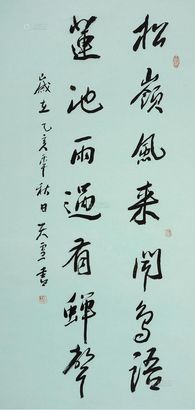 松嶺風来聞鳥語
蓮池雨過有蟬聲
歲在乙亥年秋日吴雪書